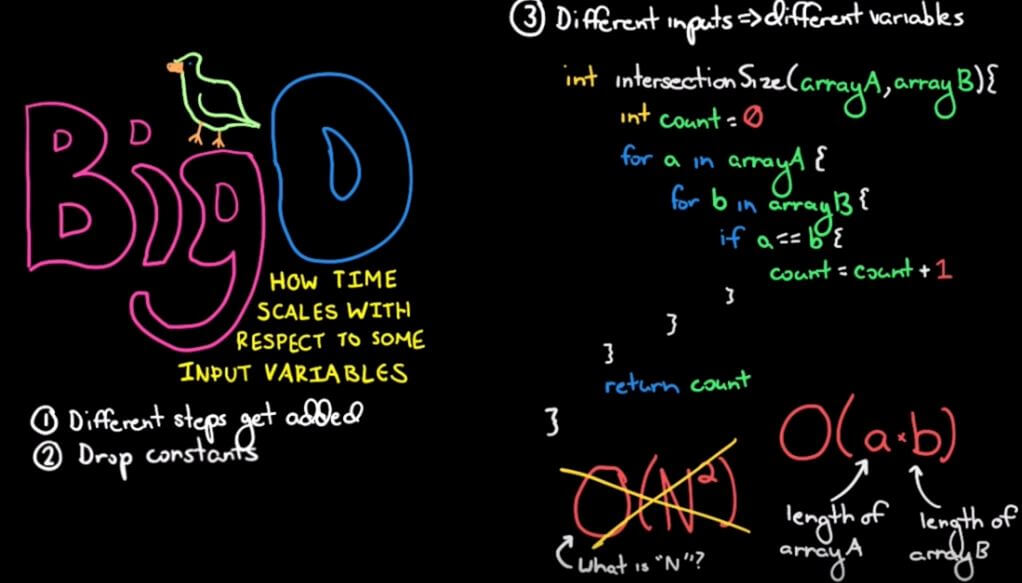 Big O
HOW TIME
SCALES WITH
RESPECT TO SOME
INPUT VARIABLES
① Different steps get added
② Drop constants
③ Different inputs => different variables
int intersectionSize(arrayA, arrayB){
int count = 0
for a in arrayA {
for b in arrayB {
if a == b {
count = count + 1
}
}
}
return count
}
O(N²)
What is "N"?
O(a*b)
length of
array A
length of
array B